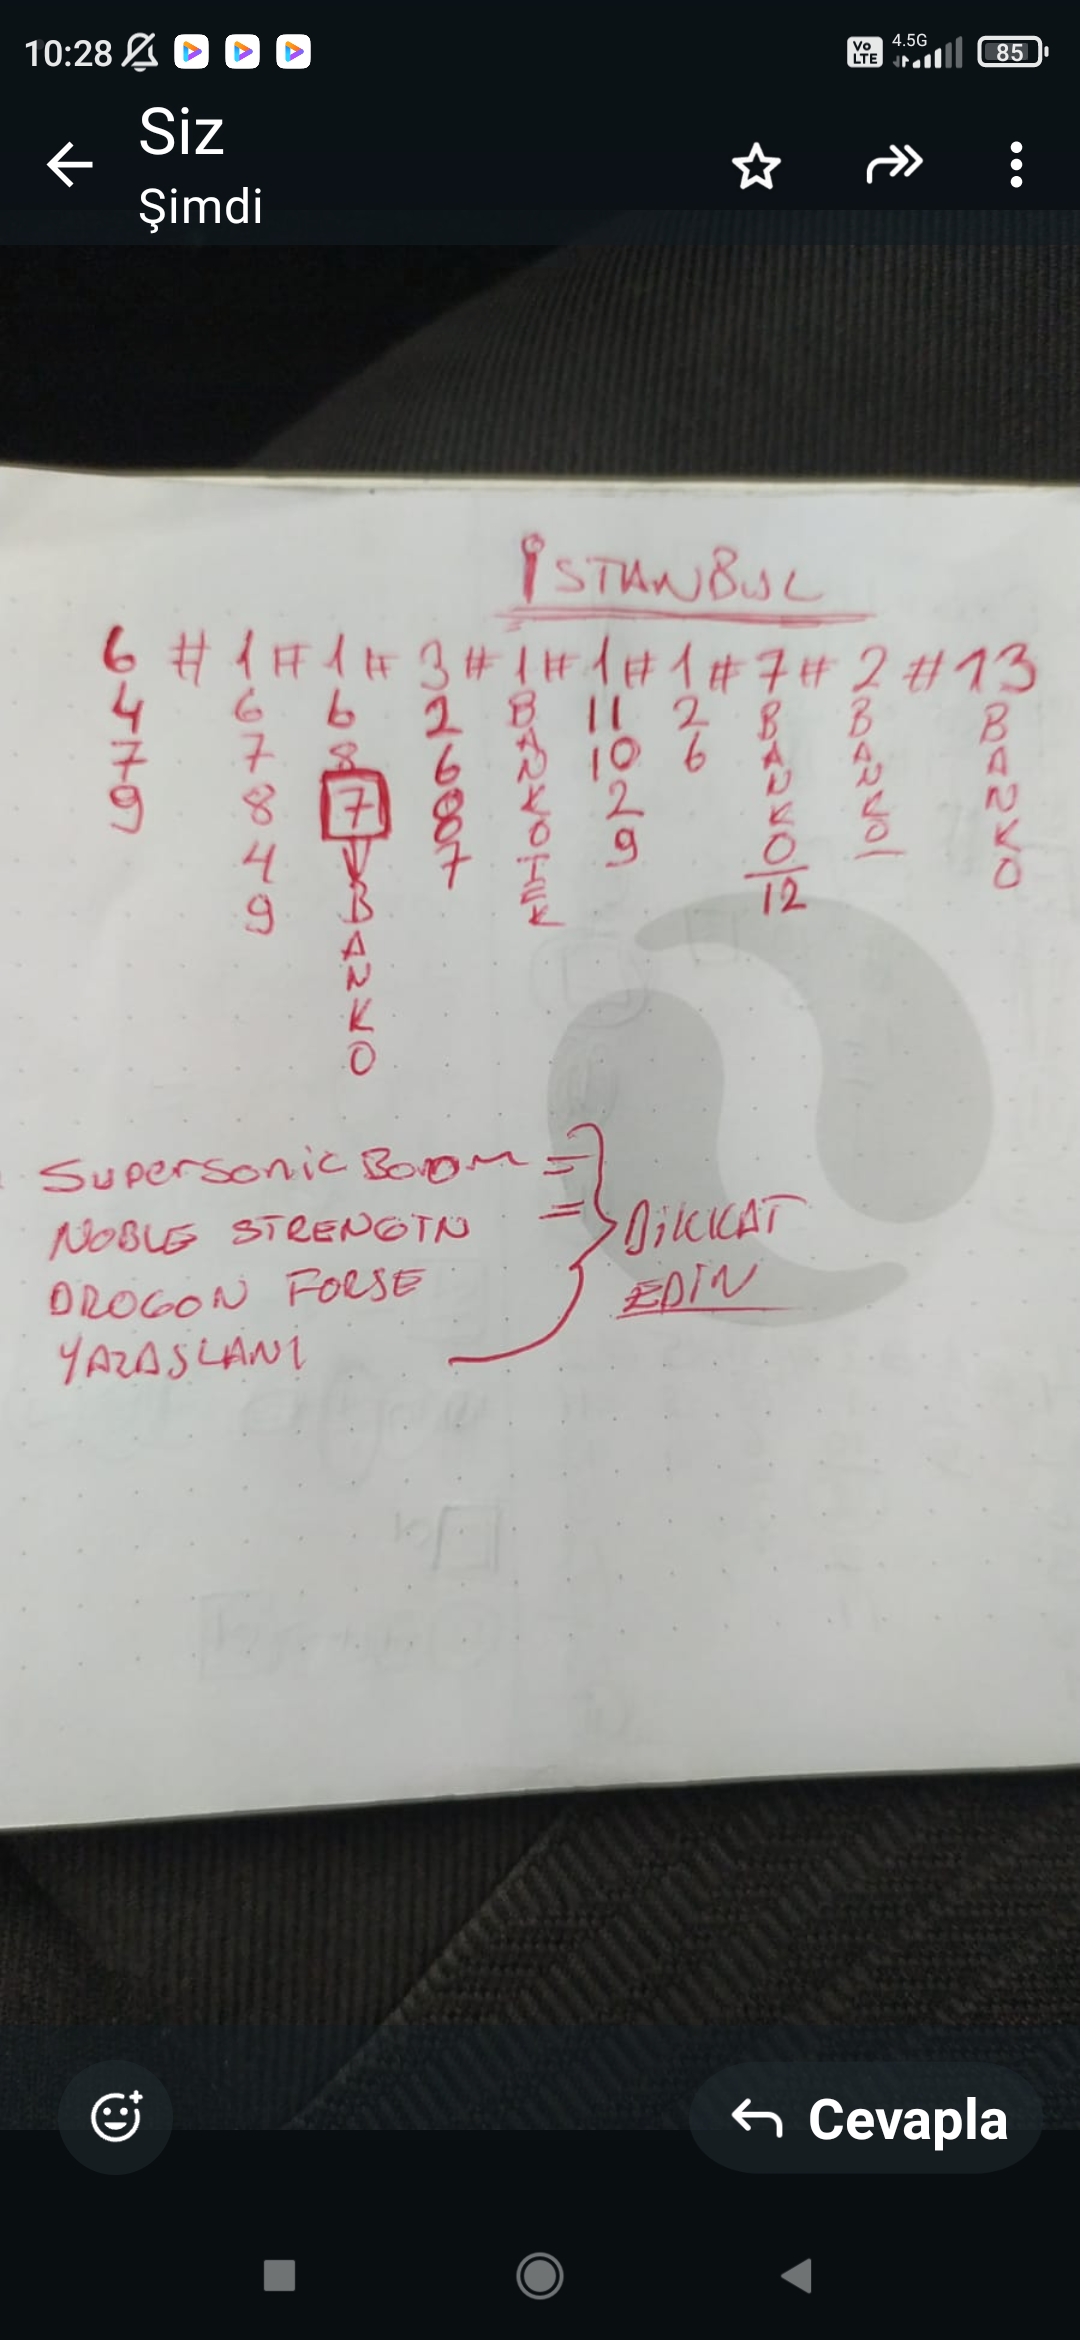 10:28 Vo LTE 4.5G 85
Siz
Şimdi
İSTANBUL
6 # 1 # 1 # 3 # 1 # 1 # 1 # 7 # 2 # 13
4 6 6 2 B 11 2 B B B
7 7 8 6 A 10 6 A A A
9 8 7 8 N 2 N N N
4 7 K 9 K K K
9 O O O O
B T 12
A E
N K
K
O
Supersonic Boom =
NOBLE STRENGTN =
DROGON FORSE
YAZASLANI
DİKKAT
EDİN
Cevapla